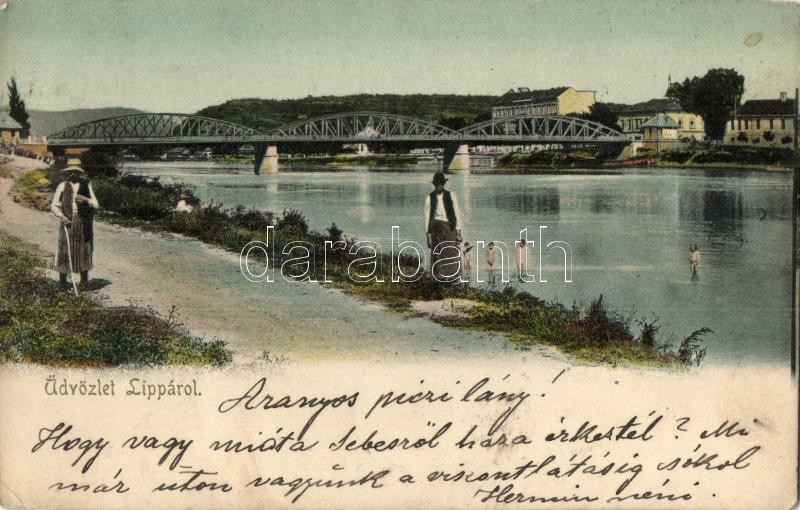 darabanth.com
Üdvözlet Lippáról.
Aranyos piczi lány!
Hogy vagy mióta Sebesről haza érkeztél? Mi
már úton vagyunk a viszontlátásig csókol
Hermin néni.